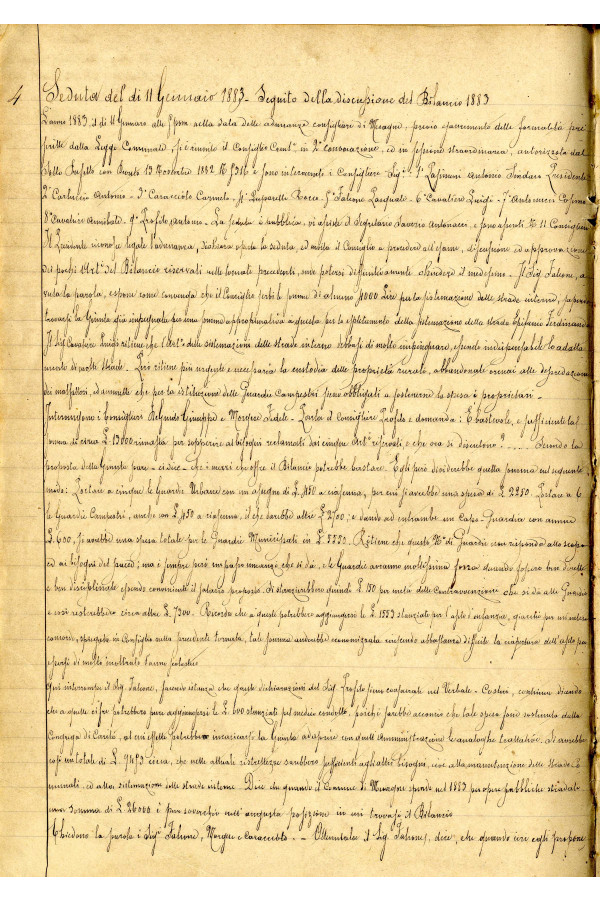 4
Seduta del dì 11 Gennaio 1883 - Seguito della discussione del Bilancio 1883
L'anno 1883, il dì 11 Gennaro alle nella sala delle adunanze consigliari di Mesagne, previo esaurimento delle formalità pre
scritte dalla Legge Comunale, si è riunito il Consiglio Com.le in 2ª convocazione, ed in sessione straordinaria, autorizzata dal
Prefetto con 13 Novembre 1882 N. 5316 e sono intervenuti i Consiglieri Sig.ri 1° Antonio Sindaco Presidente
2° Carluccio Antonio - 3° Caracciolo Carmelo - 4° Rocco - 5° Falcone Pasquale - 6° Cavaliere Luigi - 7° Antonucci Cosimo
8° Cavaliere Annibale - 9° Profilo Antonio - La seduta è pubblica, vi assiste il Segretario Saverio Antonacci, e sono assenti N. 11 Consiglieri
Il Presidente legale l'adunanza, dichiara aperta la seduta, ed invita il Consiglio a procedere all'esame, discussione ed approvazione
dei pochi Art.i del Bilancio riservati nelle tornate precedenti, onde potersi definitivamente chiudere il medesimo - Il Sig. Falcone, a
vuta la parola, espone come convenga che il Consiglio la somma di almeno 4000 Lire per la sistemazione delle strade interne,
la Giunta già impegnata per una somma a questa per l'espletamento della sistemazione della strada Eufemio Ferdinando
Il Sig. Cavaliere Luigi ritiene che l'Art.o della sistemazione delle strade interne debbasi di molto impinguare, essendo indispensabile lo adatta
mento di molte strade. Però ritiene più urgente e necessaria la custodia delle proprietà rurali, abbandonate ormai alle depredazioni
dei malfattori, ed ammette che per la istituzione delle Guardie Campestri siano obbligati a sostenerne la spesa i proprietari -
Intervengono i Consiglieri Giuseppe e Morgese Fedele - Parla il Consigliere Profilo e domanda: È bastevole, e sufficiente la
somma di circa L. 13000 rimasta per sopperire ai bisogni reclamati dai cinque Art.i riservati, e che ora si discutono? Secondo la
proposta della Giunta pare - ei dice - che i mezzi che offre il Bilancio potrebbe bastare. Egli però dividerebbe quella somma nel seguente
modo: Portare a cinque le Guardie Urbane con un assegno di L. 450 a ciascuna, per cui si avrebbe una spesa di L. 2250. Portare a 6
le Guardie Campestri, anche con L. 450 a ciascuna, il che darebbe altre L. 2700; e dando ad entrambe un Capo-Guardia con annue
L. 600, si avrebbe una spesa totale per le Guardie Municipali in L. 5550. Ritiene che questo N.o di Guardie non risponda allo scopo
ed ai bisogni del paese; ma è sempre però un passo innanzi che si dà, e le Guardie avranno moltissima forza quando fossero ben dirette
e ben disciplinate essendo conveniente il salario proposto. Si stanzierebbero quindi L. 150 per metà delle Contravvenzioni che si dà alle Guardie
e così resterebbero circa altre L. 7300. Ricorda che a queste potrebbero aggiungersi le L. 1553 stanziate per l'asilo d'infanzia, giacché per un
spiegato in Consiglio nella precedente tornata, tale somma andrebbe economizzata riuscendo abbastanza difficile la riapertura dell'asilo per
essersi di molto inoltrato l'anno scolastico
Qui interrompe il Sig. Falcone, facendo istanza, che queste dichiarazioni del Sig. Profilo siano consacrate nel Verbale - Costui, continua dicendo
che a queste cifre potrebbero pure aggiungersi le L. 600 stanziate pel medico condotto, poiché sarebbe acconcio che tale spesa fosse sostenuta dalla
Congrega di Carità, al cui effetto potrebbesi incaricare la Giunta ad aprire con quell'Amministrazione le analoghe trattative. Si avrebbe
così un totale di L. 9453 circa, che nelle attuali ristrettezze sarebbero sufficienti agli altri bisogni, cioè alla manutenzione delle strade Co
munali, ed alla sistemazione delle strade interne. Dice che quando il Comune di Mesagne spende nel 1883 per opere pubbliche stradali
una somma di L. 26000 è pur soverchio nell'angusta posizione in cui trovasi il Bilancio
Chiedono la parola i Sig.ri Falcone, Morgese e Caracciolo. - Ottenutala il Sig. Falcone, dice, che quando ieri egli propose